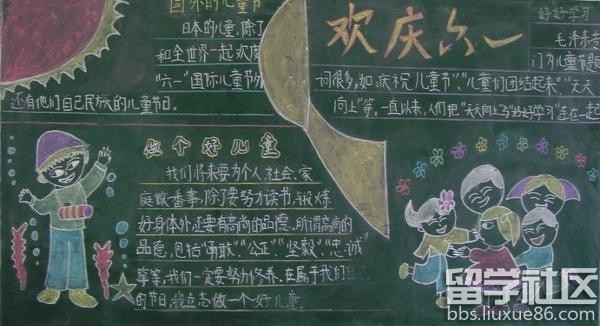 国外的儿童节
日本的儿童,除了
和全世界一起欢度
"六一"国际儿童节外
还有他们自己民族的儿童节日。
欢庆六一
好好学习
毛泽东
门为儿童节是
词很多,如:庆祝儿童节","儿童们团结起来","天天
向上"等。一直以来,人们把"天天向上"与"好好学习"连在一起
做个好儿童
我们将来要为个人,社会,家
庭做善事,除了要努力读书,锻炼
好身体外还要有高尚的品德,所谓高尚的
品德,包括"勇敢","公正","坚毅","忠诚
等等,我们一定要努力修养,在属于我们自己
的节日,我立志做一个好儿童.
留学社区
bbs.liuxue86.com